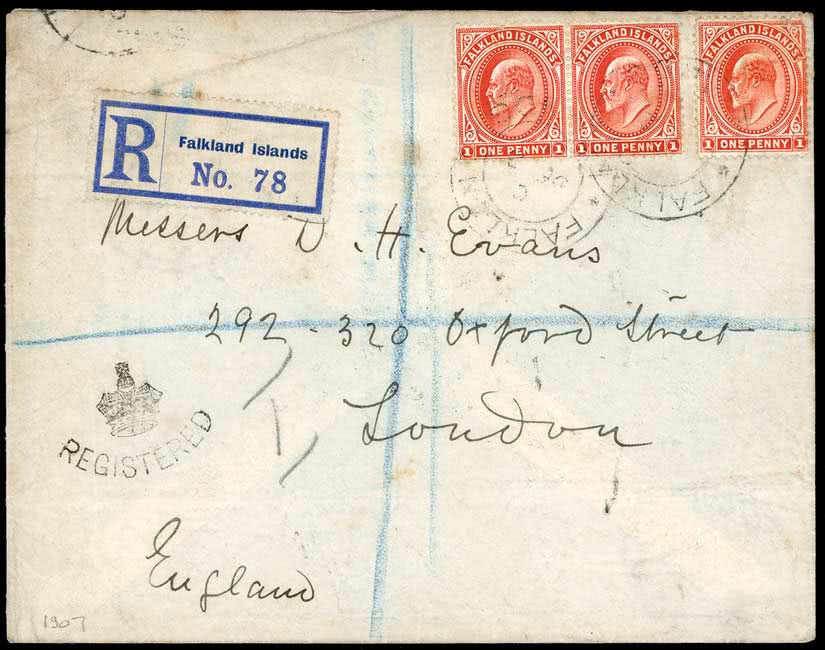 FALKLAND ISLANDS
1 ONE PENNY 1
FALKLAND ISLANDS
1 ONE PENNY 1
FALKLAND ISLANDS
1 ONE PENNY 1
R
Falkland Islands
No. 78
Messers D. H. Evans
292 - 320 Oxford Street
London
REGISTERED
England
1907